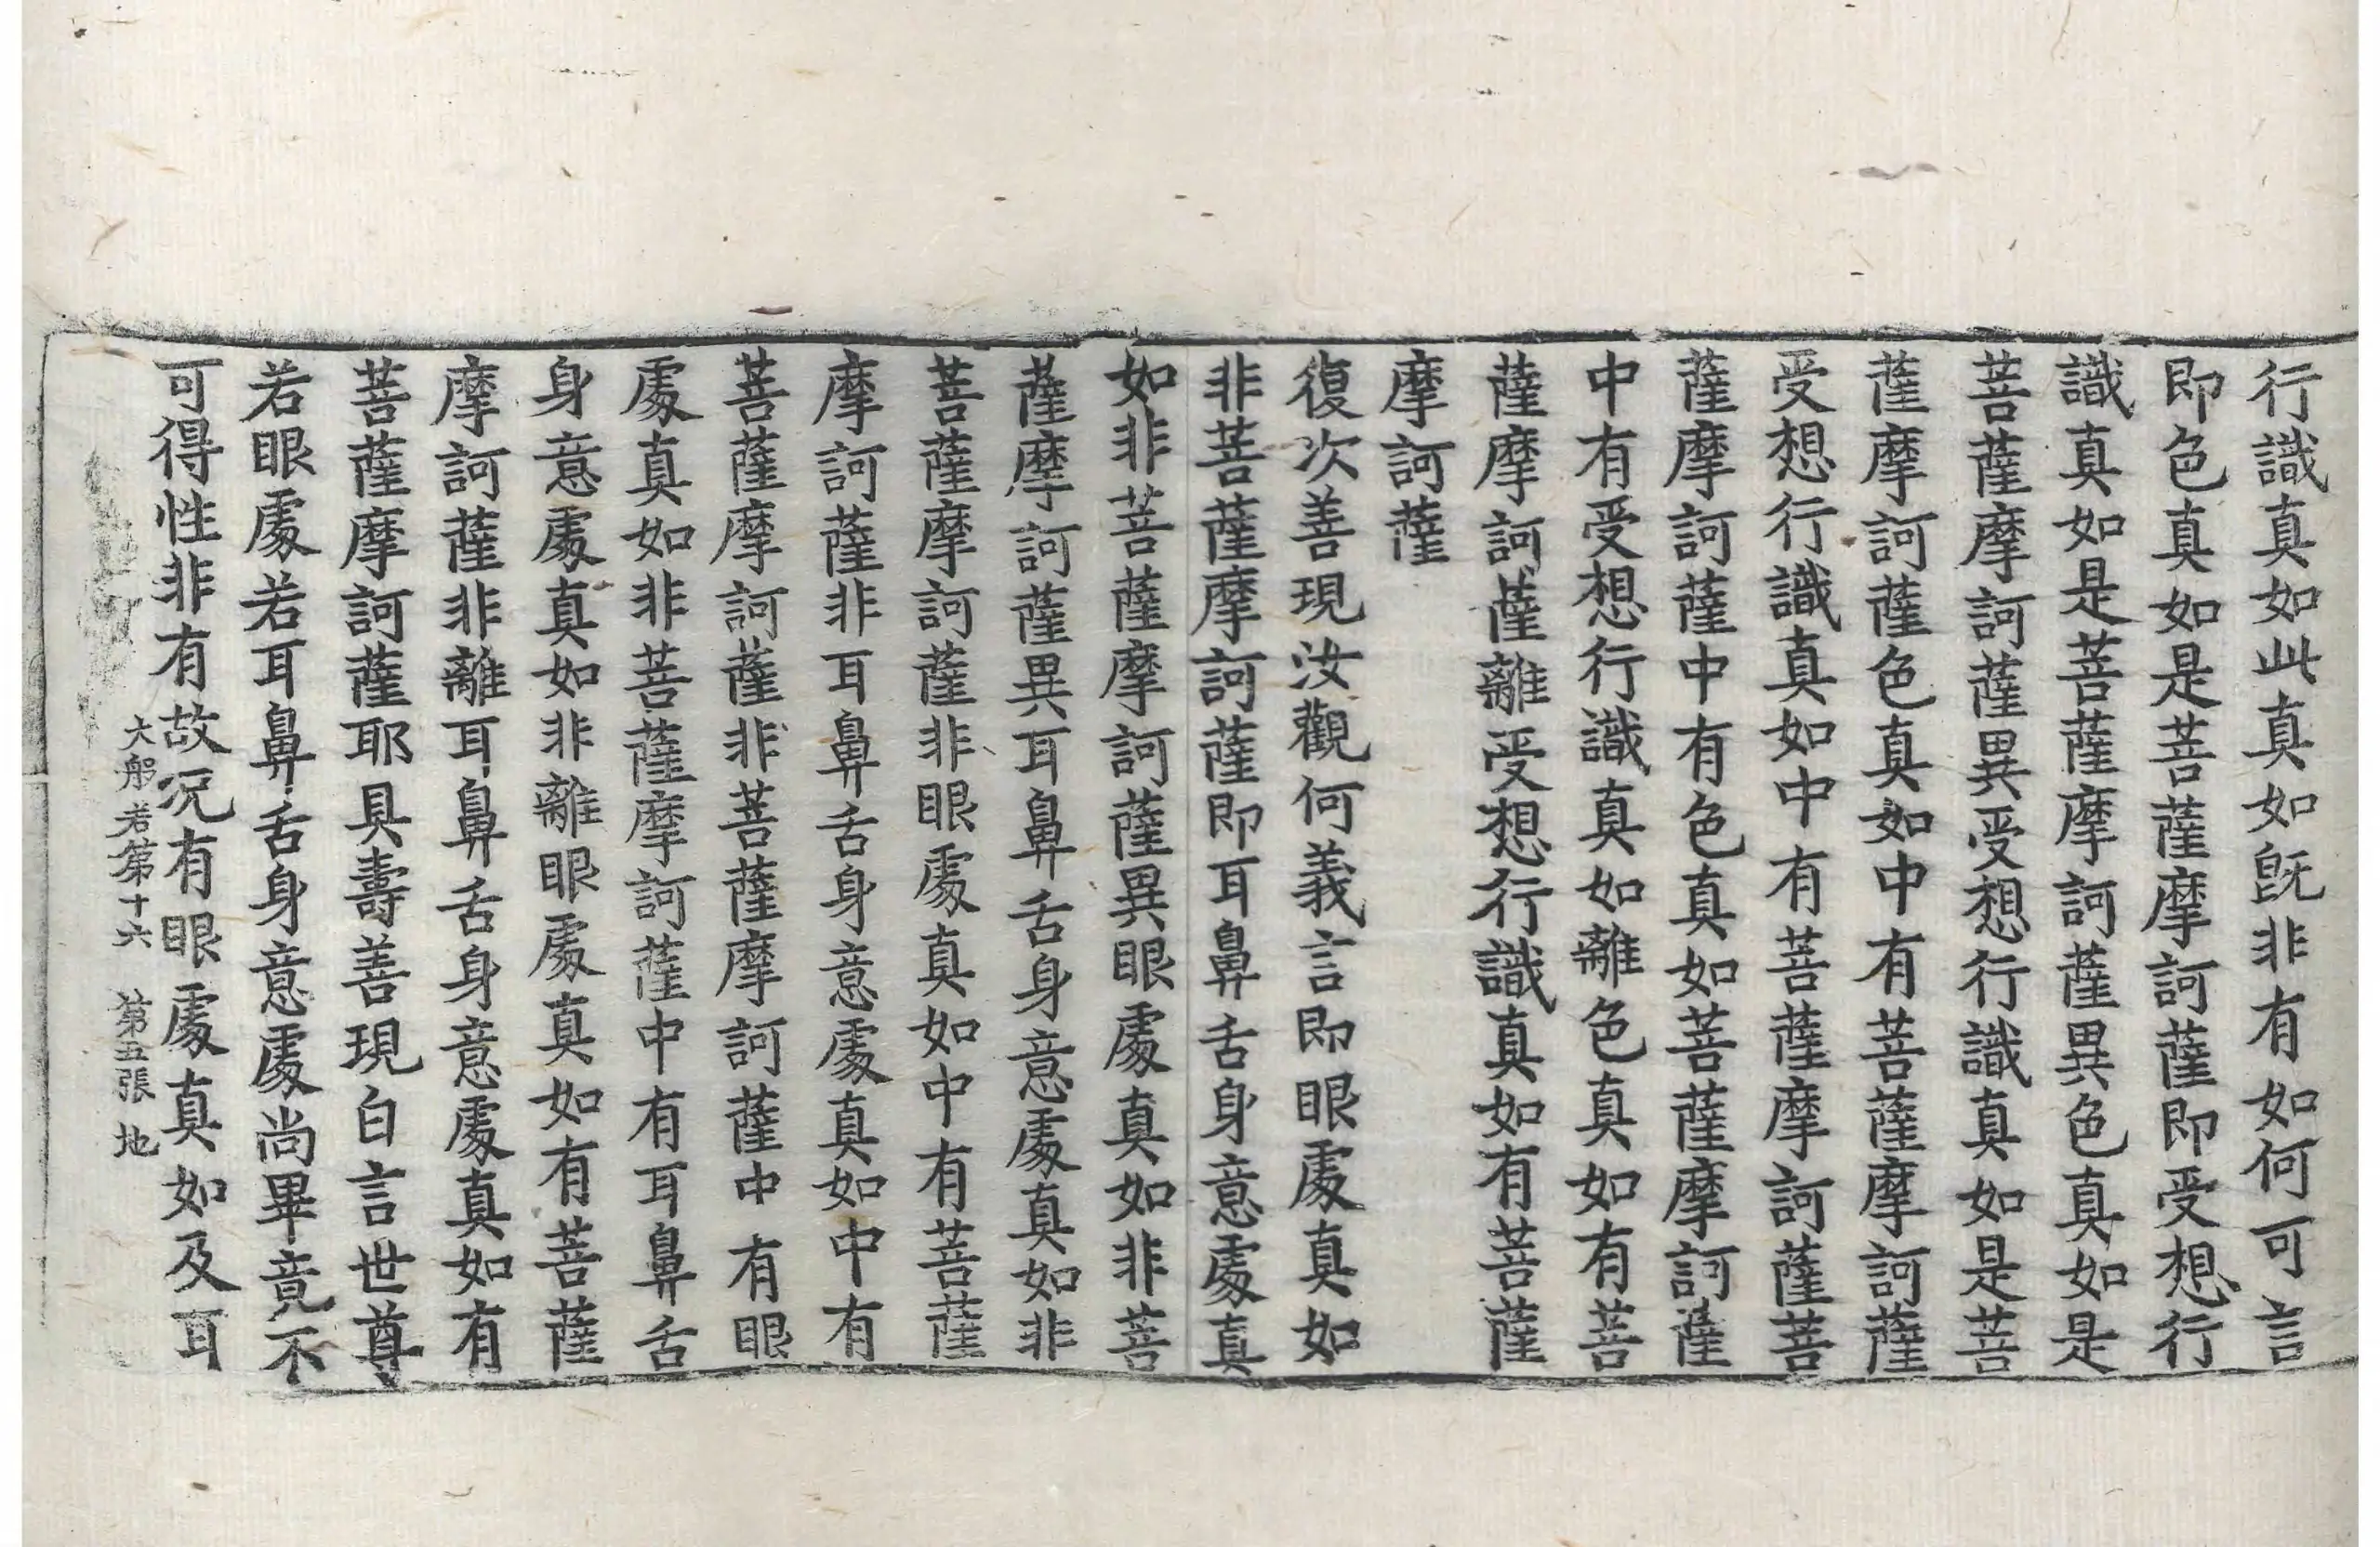 行識真如此真如旣非有如何可言
即色真如是菩薩摩訶薩即受想行
識真如是菩薩摩訶薩異色真如是
菩薩摩訶薩異受想行識真如是菩
薩摩訶薩色真如中有菩薩摩訶薩
受想行識真如中有菩薩摩訶薩菩
薩摩訶薩中有色真如菩薩摩訶薩
中有受想行識真如離色真如有菩
薩摩訶薩離受想行識真如有菩薩
摩訶薩
復次善現汝觀何義言即眼處真如
非菩薩摩訶薩即耳鼻舌身意處真
如非菩薩摩訶薩異眼處真如非菩
薩摩訶薩異耳鼻舌身意處真如非
菩薩摩訶薩非眼處真如中有菩薩
摩訶薩非耳鼻舌身意處真如中有
菩薩摩訶薩非菩薩摩訶薩中有眼
處真如非菩薩摩訶薩中有耳鼻舌
身意處真如非離眼處真如有菩薩
摩訶薩非離耳鼻舌身意處真如有
菩薩摩訶薩耶具壽善現白言世尊
若眼處若耳鼻舌身意處尚畢竟不
可得性非有故況有眼處真如及耳
大般若第十六 第五張 地